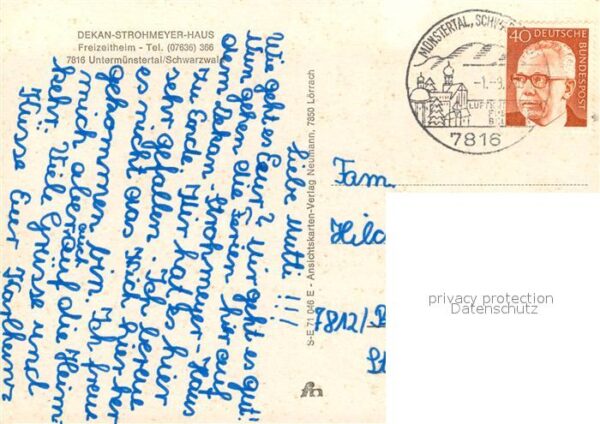 DEKAN-STROHMEYER-HAUS
Freizeitheim - Tel. (07636) 366
7816 Untermünstertal/Schwarzwal
Liebe Mutti!!!
Wie geht es Euch? Mir geht es gut!
Nun gehen die Ferien hier auf
dem Dekan-Strohmeyer-Haus
zu Ende. Mir hat es hier
sehr gefallen. Ich bereue
es nicht das ich hierher
gekommen bin. Ich freue
mich aber auch auf die Heim-
kehr. Viele Grüsse und
Küsse Euer Karlheinz
S-E 71 046 E - Ansichtskarten-Verlag Neumann, 7850 Lörrach
MÜNSTERTAL, SCHW
7816
40
DEUTSCHE
BUNDESPOST
Fam.
7812/
privacy protection
Datenschutz